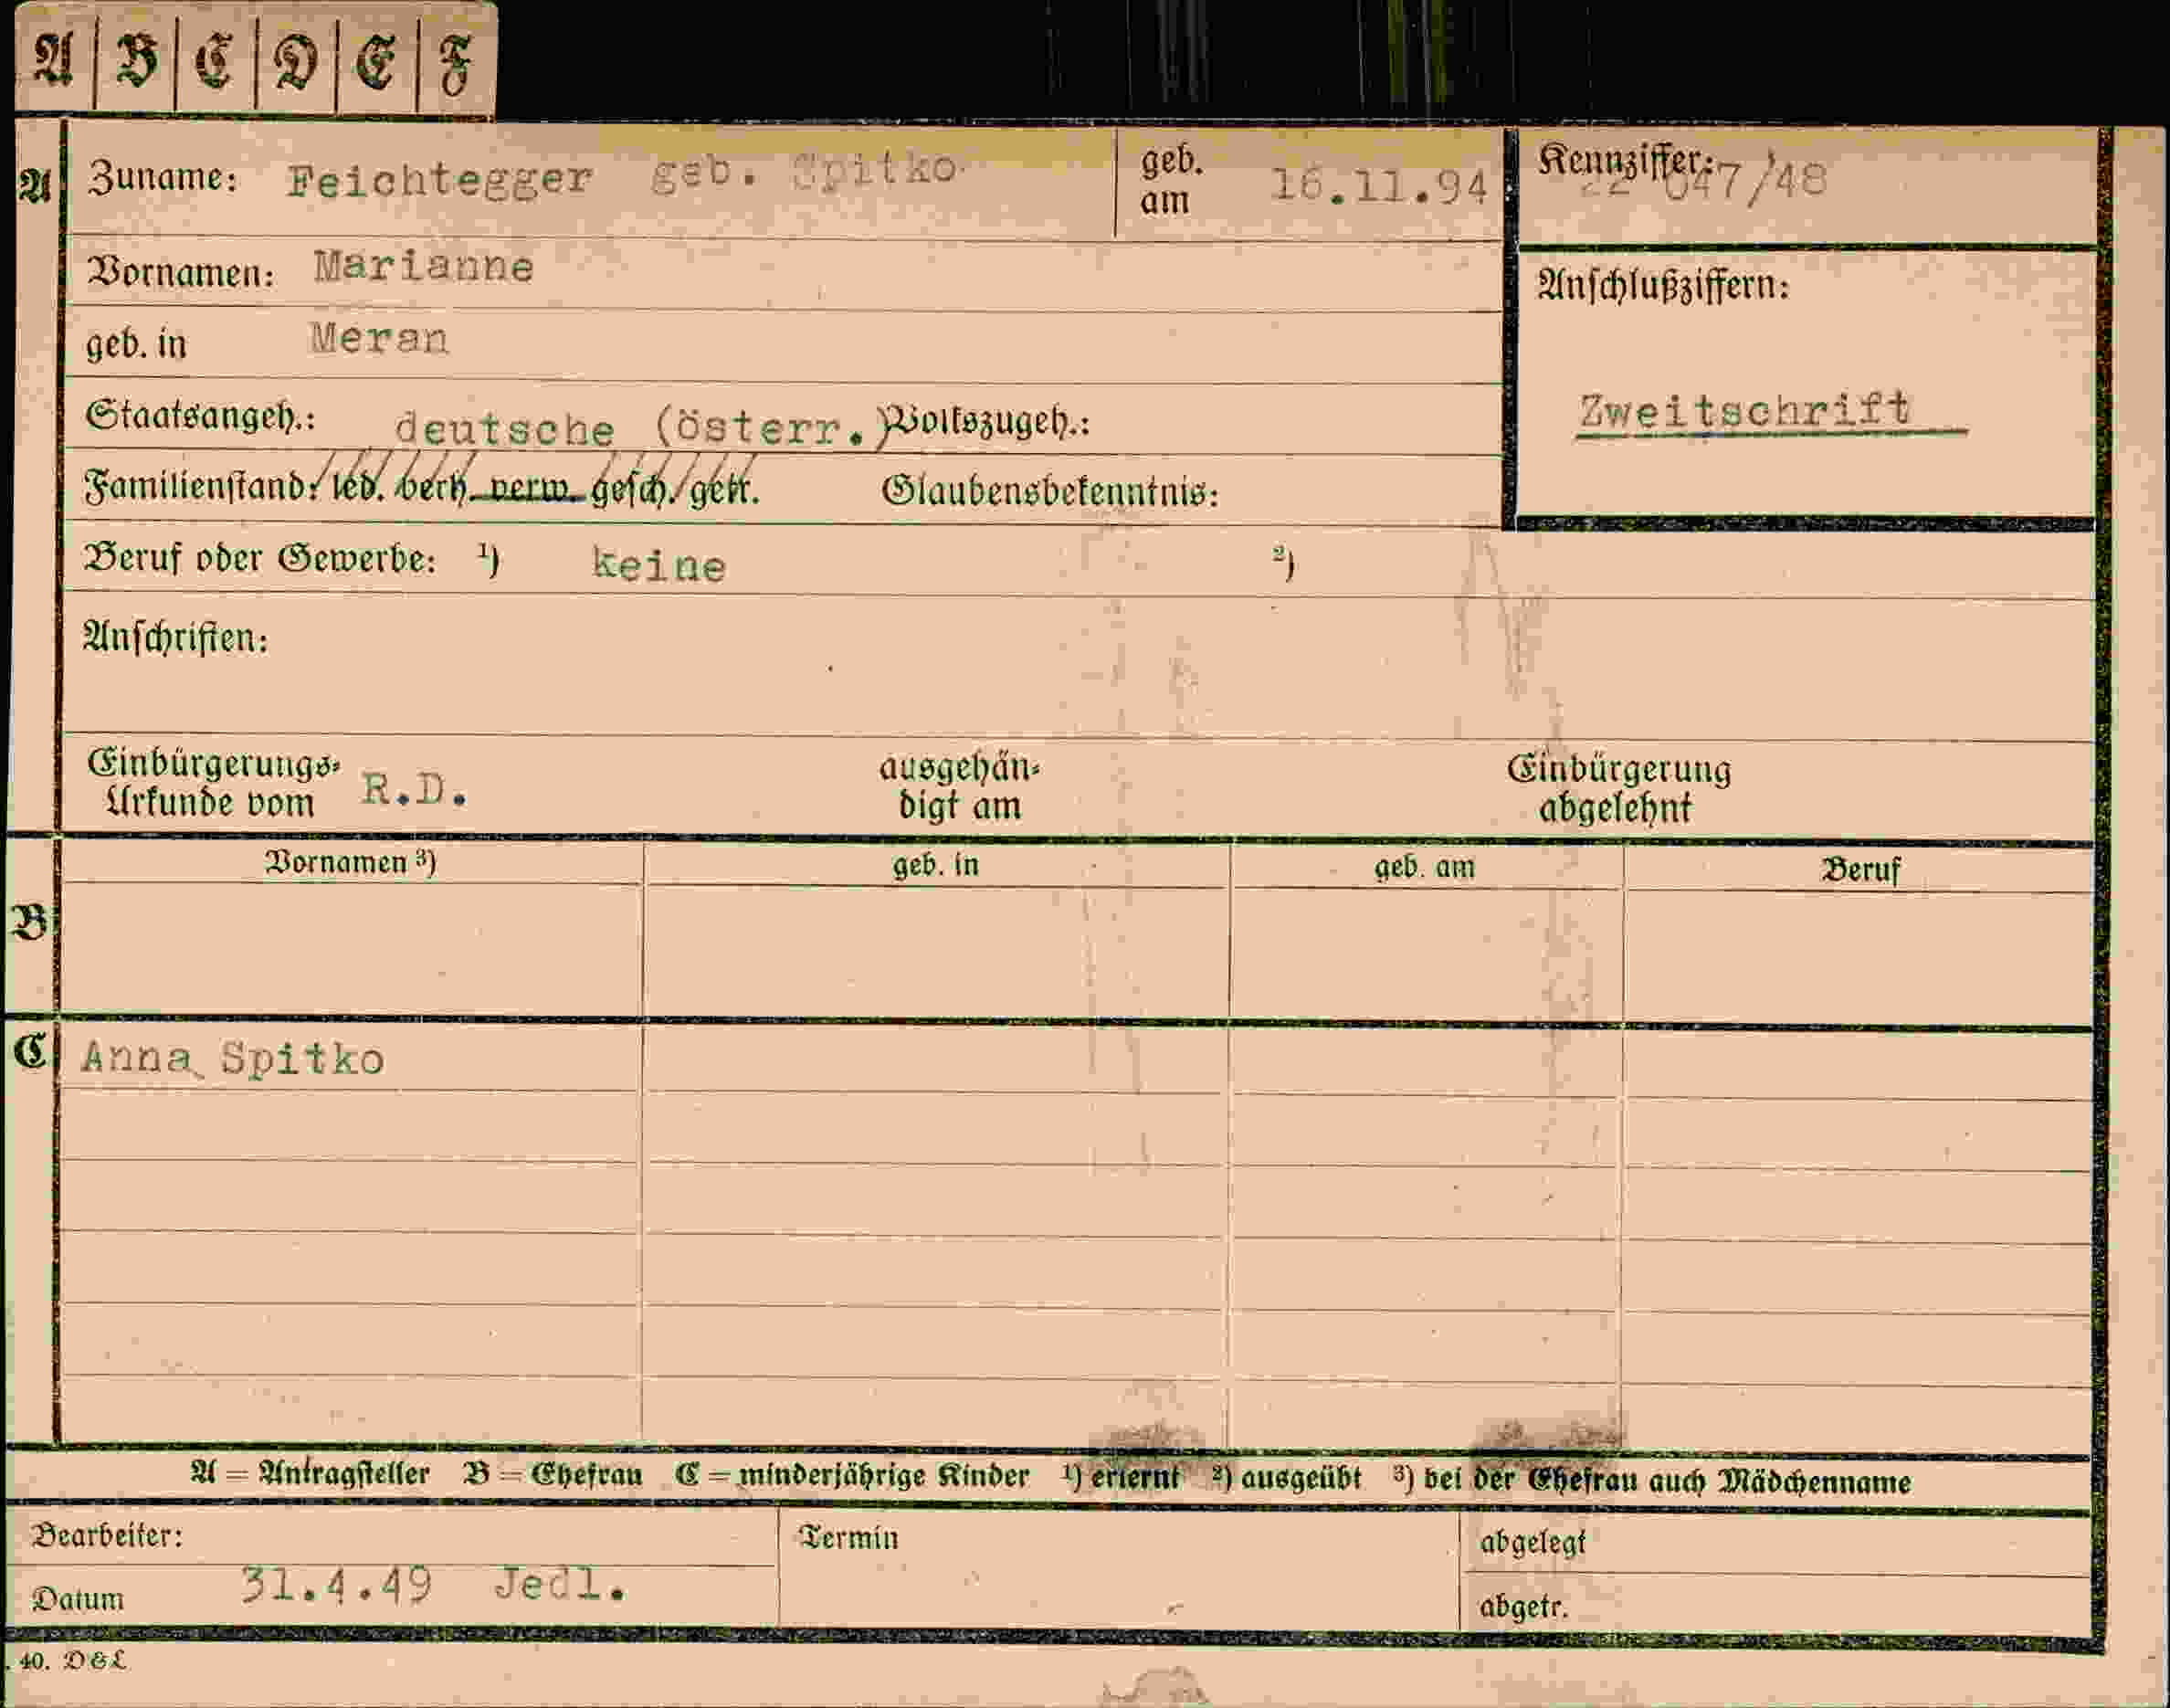 A B C D E F
A Zuname: Feichtegger geb. Spitko geb. am 16.11.94 Kennziffer: 47/48
Vornamen: Marianne
Anschlußziffern:
geb. in Meran
Zweitschrift
Staatsangeh.: deutsche (österr.) Volkszugeh.:
Familienstand: led. verh. verw. gesch. getr. Glaubensbekenntnis:
Beruf oder Gewerbe: ¹) keine ²)
Anschriften:
Einbürgerungs- ausgehän- Einbürgerung
Urkunde vom R.D. digt am abgelehnt
Vornamen ³) geb. in geb. am Beruf
B
C Anna Spitko
A = Antragsteller B = Ehefrau C = minderjährige Kinder ¹) erlernt ²) ausgeübt ³) bei der Ehefrau auch Mädchenname
Bearbeiter: Termin abgelegt
Datum 31.4.49 Jedl. abgetr.
40. D&L